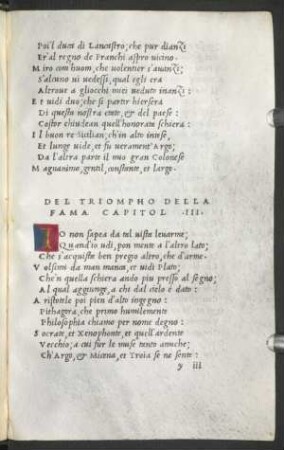 Poi'l duca di Lancastro; che pur dianZi
Et'al regno de Franchi aspro uicino.
Miro com huom, che uolentier s'auanZi;
S'alcuno ui uedessi, qual egli era
Altroue a gliocchi miei ueduto inanZi:
Et uidi duo; che si partir hiersera
Di questa nostra etate, & del paese:
Costor chiudean quell'honorata schiera:
Il buon re Sicilian; ch'in alto intese,
Et lunge uide, et fu ueramente Argo;
Da l'altra parte il mio gran Colonese
Magnanimo, gentil, constante, et largo.
DEL TRIOMPHO DELLA
FAMA CAPITOL .III.
IO non sapea da tal uista leuarme;
Quand'io udi, pon mente a l'altro lato;
Che s'acquista ben pregio altro, che d'arme.
Volsimi da man manca, et uidi Plato;
Che'n quella schiera ando piu presso al segno;
Al qual aggiunge, a chi dal cielo è dato:
Aristotele poi pien d'alto ingegno:
Pithagora, che primo humilemente
Philosophia chiamo per nome degno:
Socrate, et Xenophonte, et quell'ardente
Vecchio; a cui fur le muse tanto amiche;
Ch'Argo, & Micena, et Troia se ne sente:
y iii